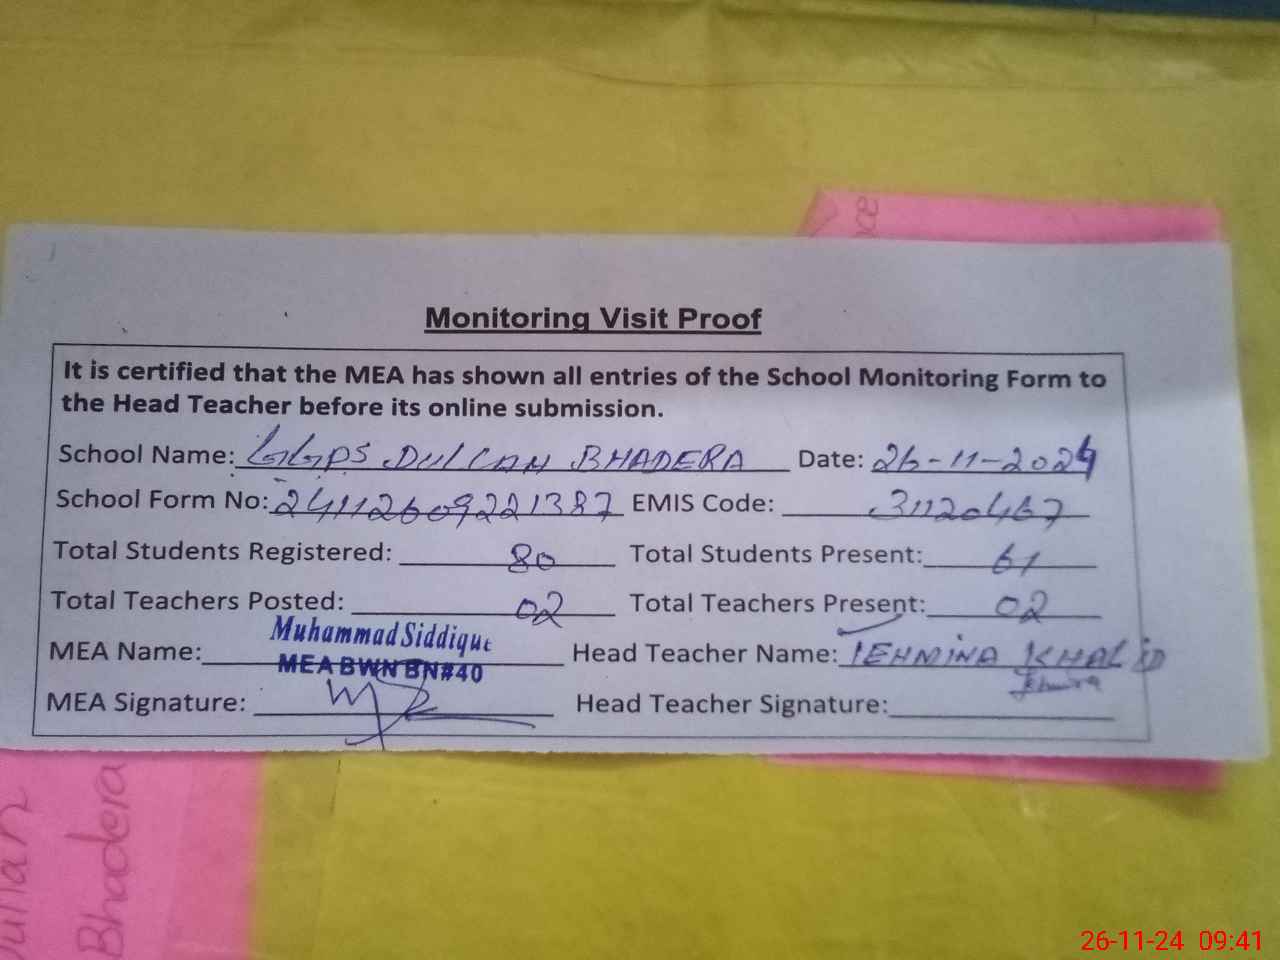 Monitoring Visit Proof
It is certified that the MEA has shown all entries of the School Monitoring Form to
the Head Teacher before its online submission.
School Name: GGPS DULLAN BHADERA Date: 26-11-2024
School Form No: 24112609221387 EMIS Code: 31120467
Total Students Registered: 80 Total Students Present: 61
Total Teachers Posted: 02 Total Teachers Present: 02
MEA Name: Muhammad Siddique Head Teacher Name: TEHMINA KHALID
MEA BWN BN#40
MEA Signature: Head Teacher Signature:
Bhadera
26-11-24 09:41